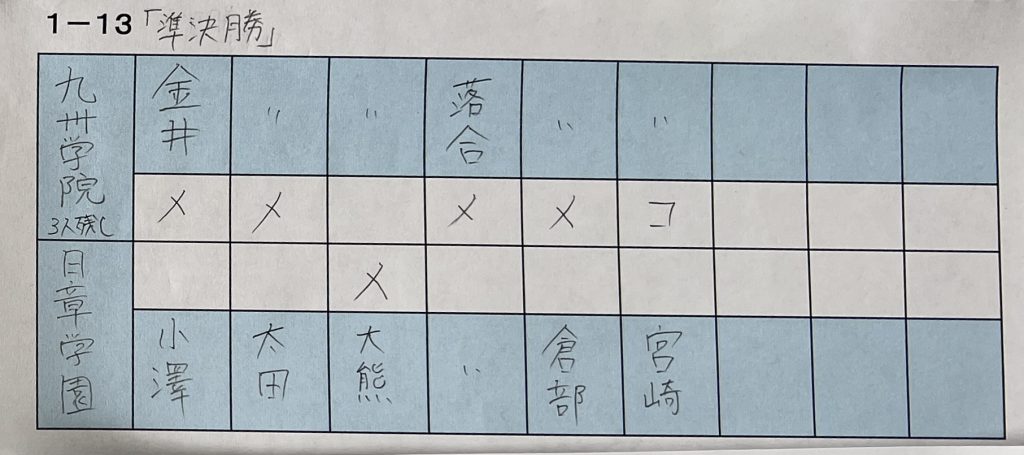 1－13「準決勝」
九卅学院 金井 〃 〃 落合 〃 〃
3人残し メ メ メ メ コ
メ
日章学園 小澤 太田 大熊 〃 倉部 宮崎